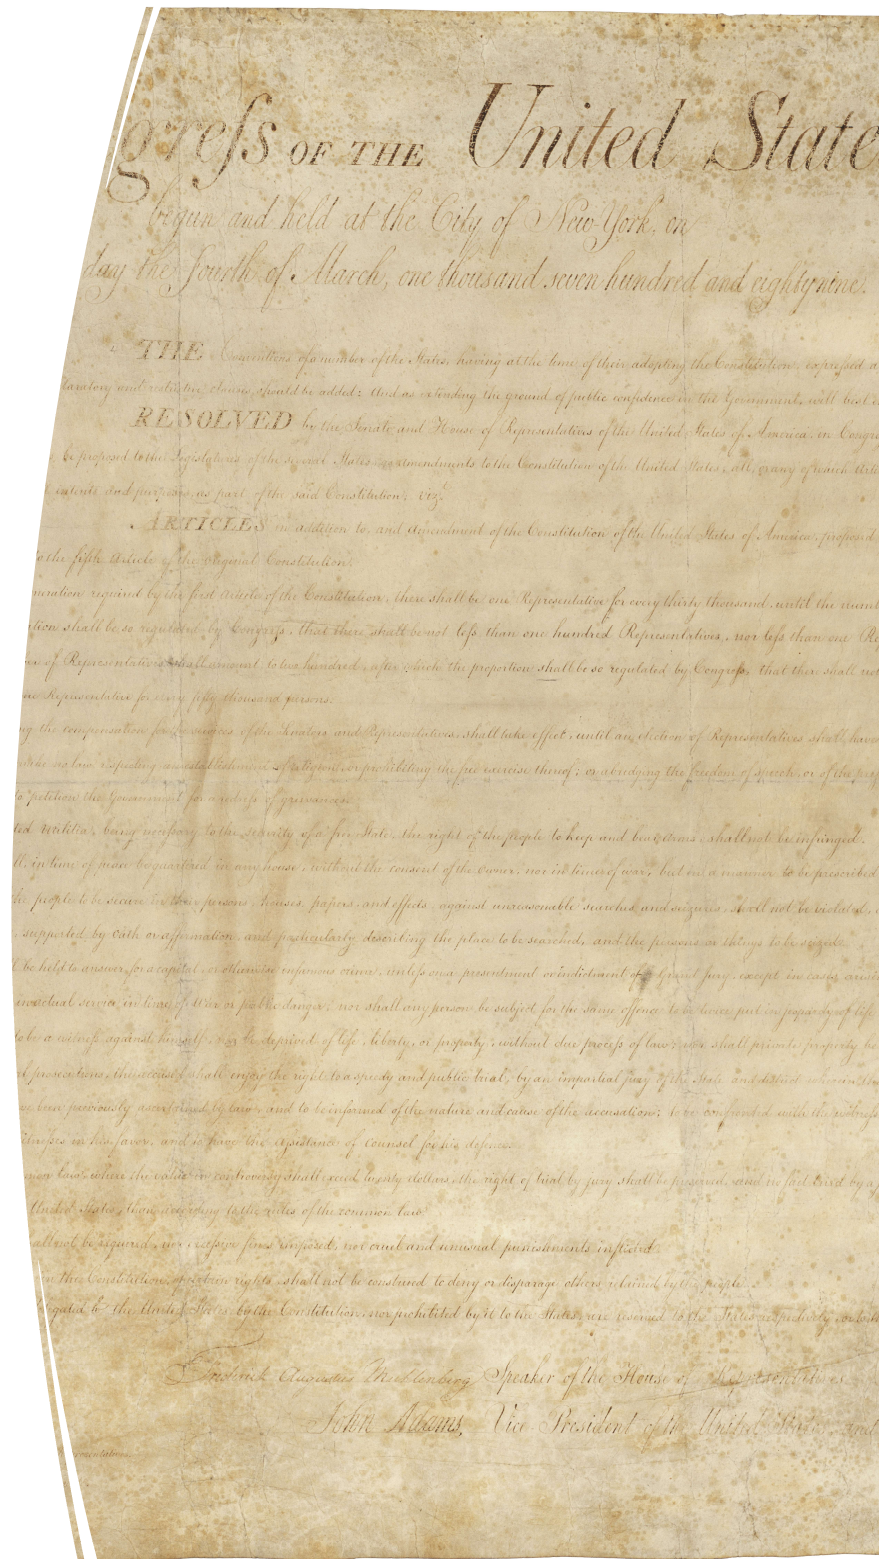 gress OF THE United State
begun and held at the City of New-York, on
day the fourth of March, one thousand seven hundred and eighty nine.
THE Conventions of a number of the States, having at the time of their adopting the Constitution, expressed a
claratory and restrictive clauses should be added: And as extending the ground of public confidence in the Government, will best
RESOLVED by the Senate and House of Representatives of the United States of America, in Congr
be proposed to the Legislatures of the several States, as amendments to the Constitution of the United States, all, or any of which Arti
intents and purposes, as part of the said Constitution; vizt
ARTICLES in addition to, and Amendment of the Constitution of the United States of America, proposed
to the fifth Article of the original Constitution.
meration required by the first Article of the Constitution, there shall be one Representative for every thirty thousand, until the numb
tion shall be so regulated by Congress, that there shall be not less than one hundred Representatives, nor less than one Re
er of Representatives shall amount to two hundred, after which the proportion shall be so regulated by Congress, that there shall not
one Representative for every fifty thousand persons.
ng the compensation for the services of the Senators and Representatives, shall take effect, until an election of Representatives shall have
make no law respecting an establishment of religion, or prohibiting the free exercise thereof; or abridging the freedom of speech, or of the pre
to petition the Government for a redress of grievances.
ted Militia, being necessary to the security of a free State, the right of the people to keep and bear Arms, shall not be infringed.
ll, in time of peace be quartered in any house, without the consent of the Owner, nor in time of war, but in a manner to be prescribed
the people to be secure in their persons, houses, papers, and effects, against unreasonable searches and seizures, shall not be violated,
supported by Oath or affirmation, and particularly describing the place to be searched, and the persons or things to be seized.
l be held to answer for a capital, or otherwise infamous crime, unless on a presentment or indictment of a Grand Jury, except in cases arisin
in actual service, in time of War or public danger; nor shall any person be subject for the same offence to be twice put in jeopardy of life
to be a witness against himself, nor be deprived of life, liberty, or property, without due process of law; nor shall private property be
l prosecutions, the accused shall enjoy the right to a speedy and public trial, by an impartial jury of the State and district wherein the
ve been previously ascertained by law, and to be informed of the nature and cause of the accusation; to be confronted with the witness
itnesses in his favor, and to have the Assistance of Counsel for his defence.
mon law, where the value in controversy shall exceed twenty dollars, the right of trial by jury shall be preserved, and no fact tried by a j
United States, than according to the rules of the common law.
all not be required, nor excessive fines imposed, nor cruel and unusual punishments inflicted.
in the Constitution, of certain rights, shall not be construed to deny or disparage others retained by the people.
legated to the United States by the Constitution, nor prohibited by it to the States, are reserved to the States respectively, or to th
Frederick Augustus Muhlenberg Speaker of the House of Representatives
John Adams, Vice-President of the United States, and
resentatives.